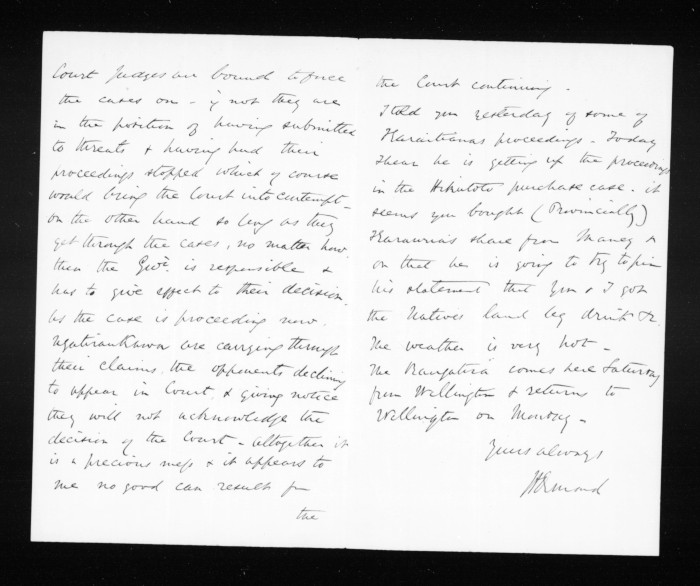 Court Judges are bound to force
the cases on - if not they are
in the position of having submitted
to threats & having had their
proceedings stopped which of course
would bring the Court into contempt -
on the other hand so long as they
get through the cases, no matter how,
then the Govt. is responsible &
has to give effect to their decision.
As the case is proceeding now.
Ngatiraukawa are carrying through
their claims, the opponents declining
to appear in Court, & giving notice
they will not acknowledge the
decision of the Court - altogether it
is a precious mess & it appears to
me no good can result from
the
the Court continuing -
I told you yesterday of some of
Karaitianas proceedings - Today
I hear he is getting up the proceedings
in the Hikutoto purchase case. it
seems you bought (Provincially)
Karauria's share from Maney &
on that he is going to try to pin
his statement that you & I got
the Natives land by drink &c.
The weather is very hot -
The Rangatira comes here Saturday
from Wellington & returns to
Wellington on Monday -
Yours always
JD Ormond